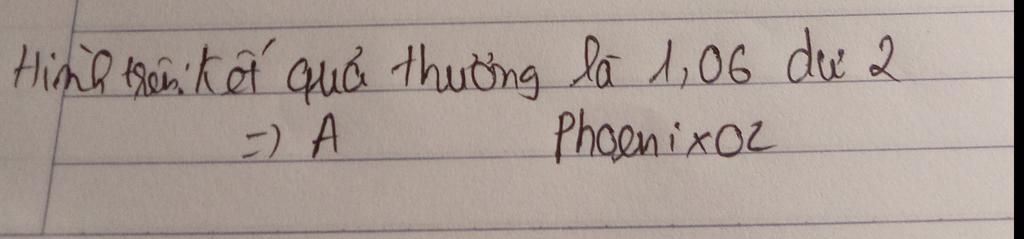 Hình trên: kết quả thương là 1,06 dư 2
=) A Phoenix02